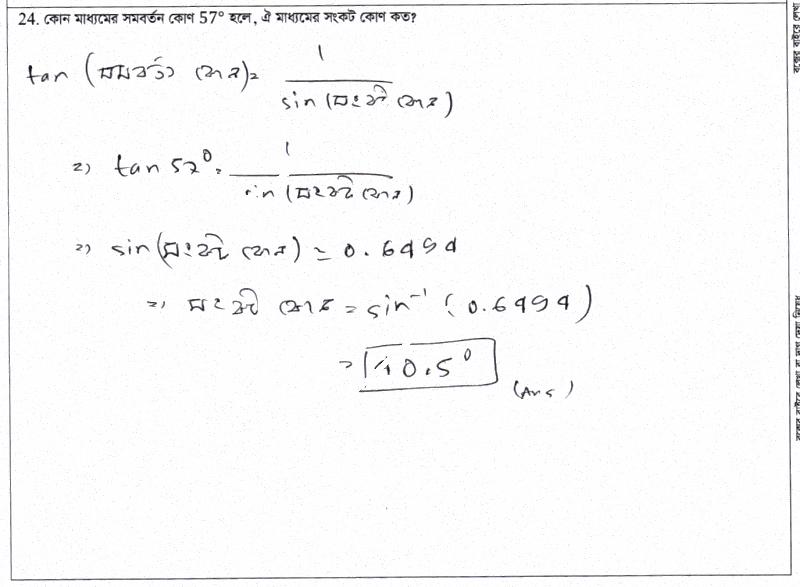 24. কোন মাধ্যমের সমবর্তন কোণ 57° হলে, ঐ মাধ্যমের সংকট কোণ কত?
tan (সমবর্তন কোণ) = 1 / sin (সংকট কোণ)
=) tan 57° = 1 / sin (সংকট কোণ)
=) sin (সংকট কোণ) = 0.6494
=) সংকট কোণ = sin⁻¹ (0.6494)
= 40.5°
(Ans)